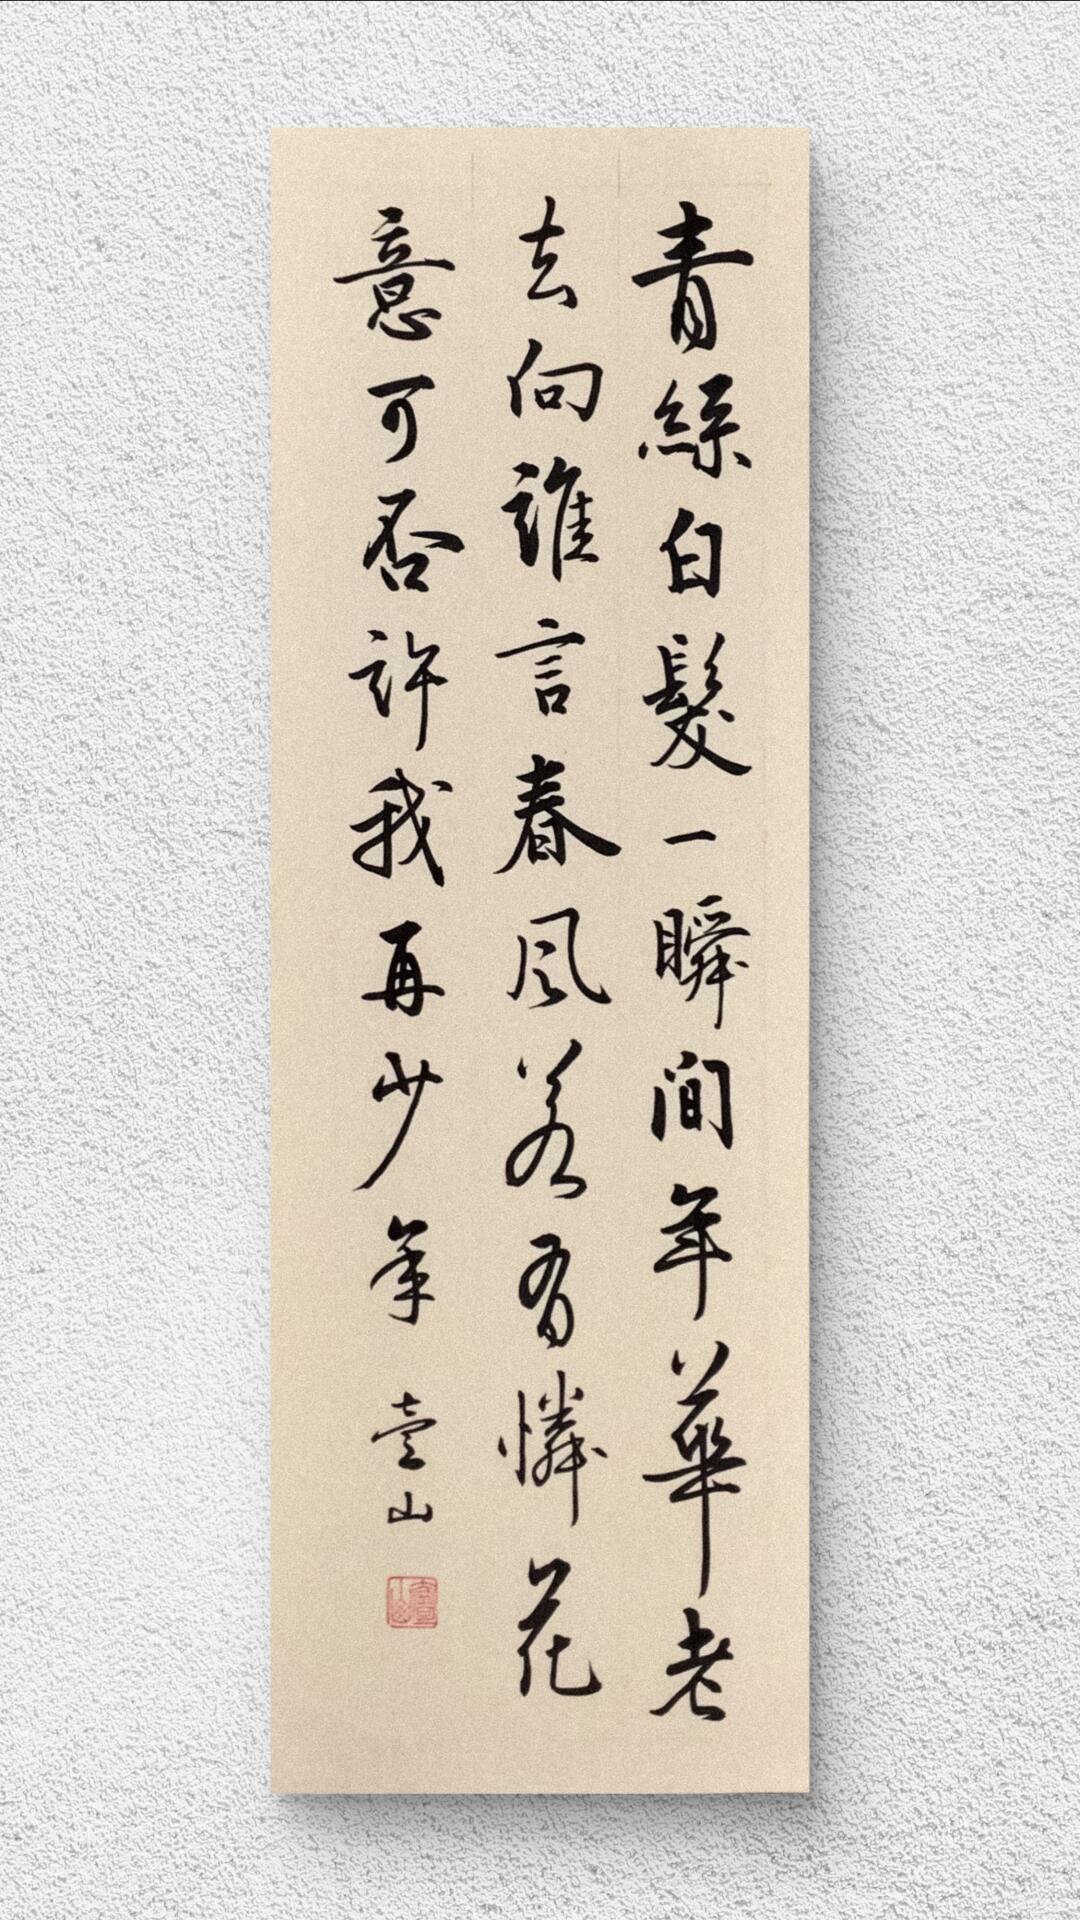 青絲白髮一瞬間年華老
去向誰言春風若有憐花
意可否許我再少年 山